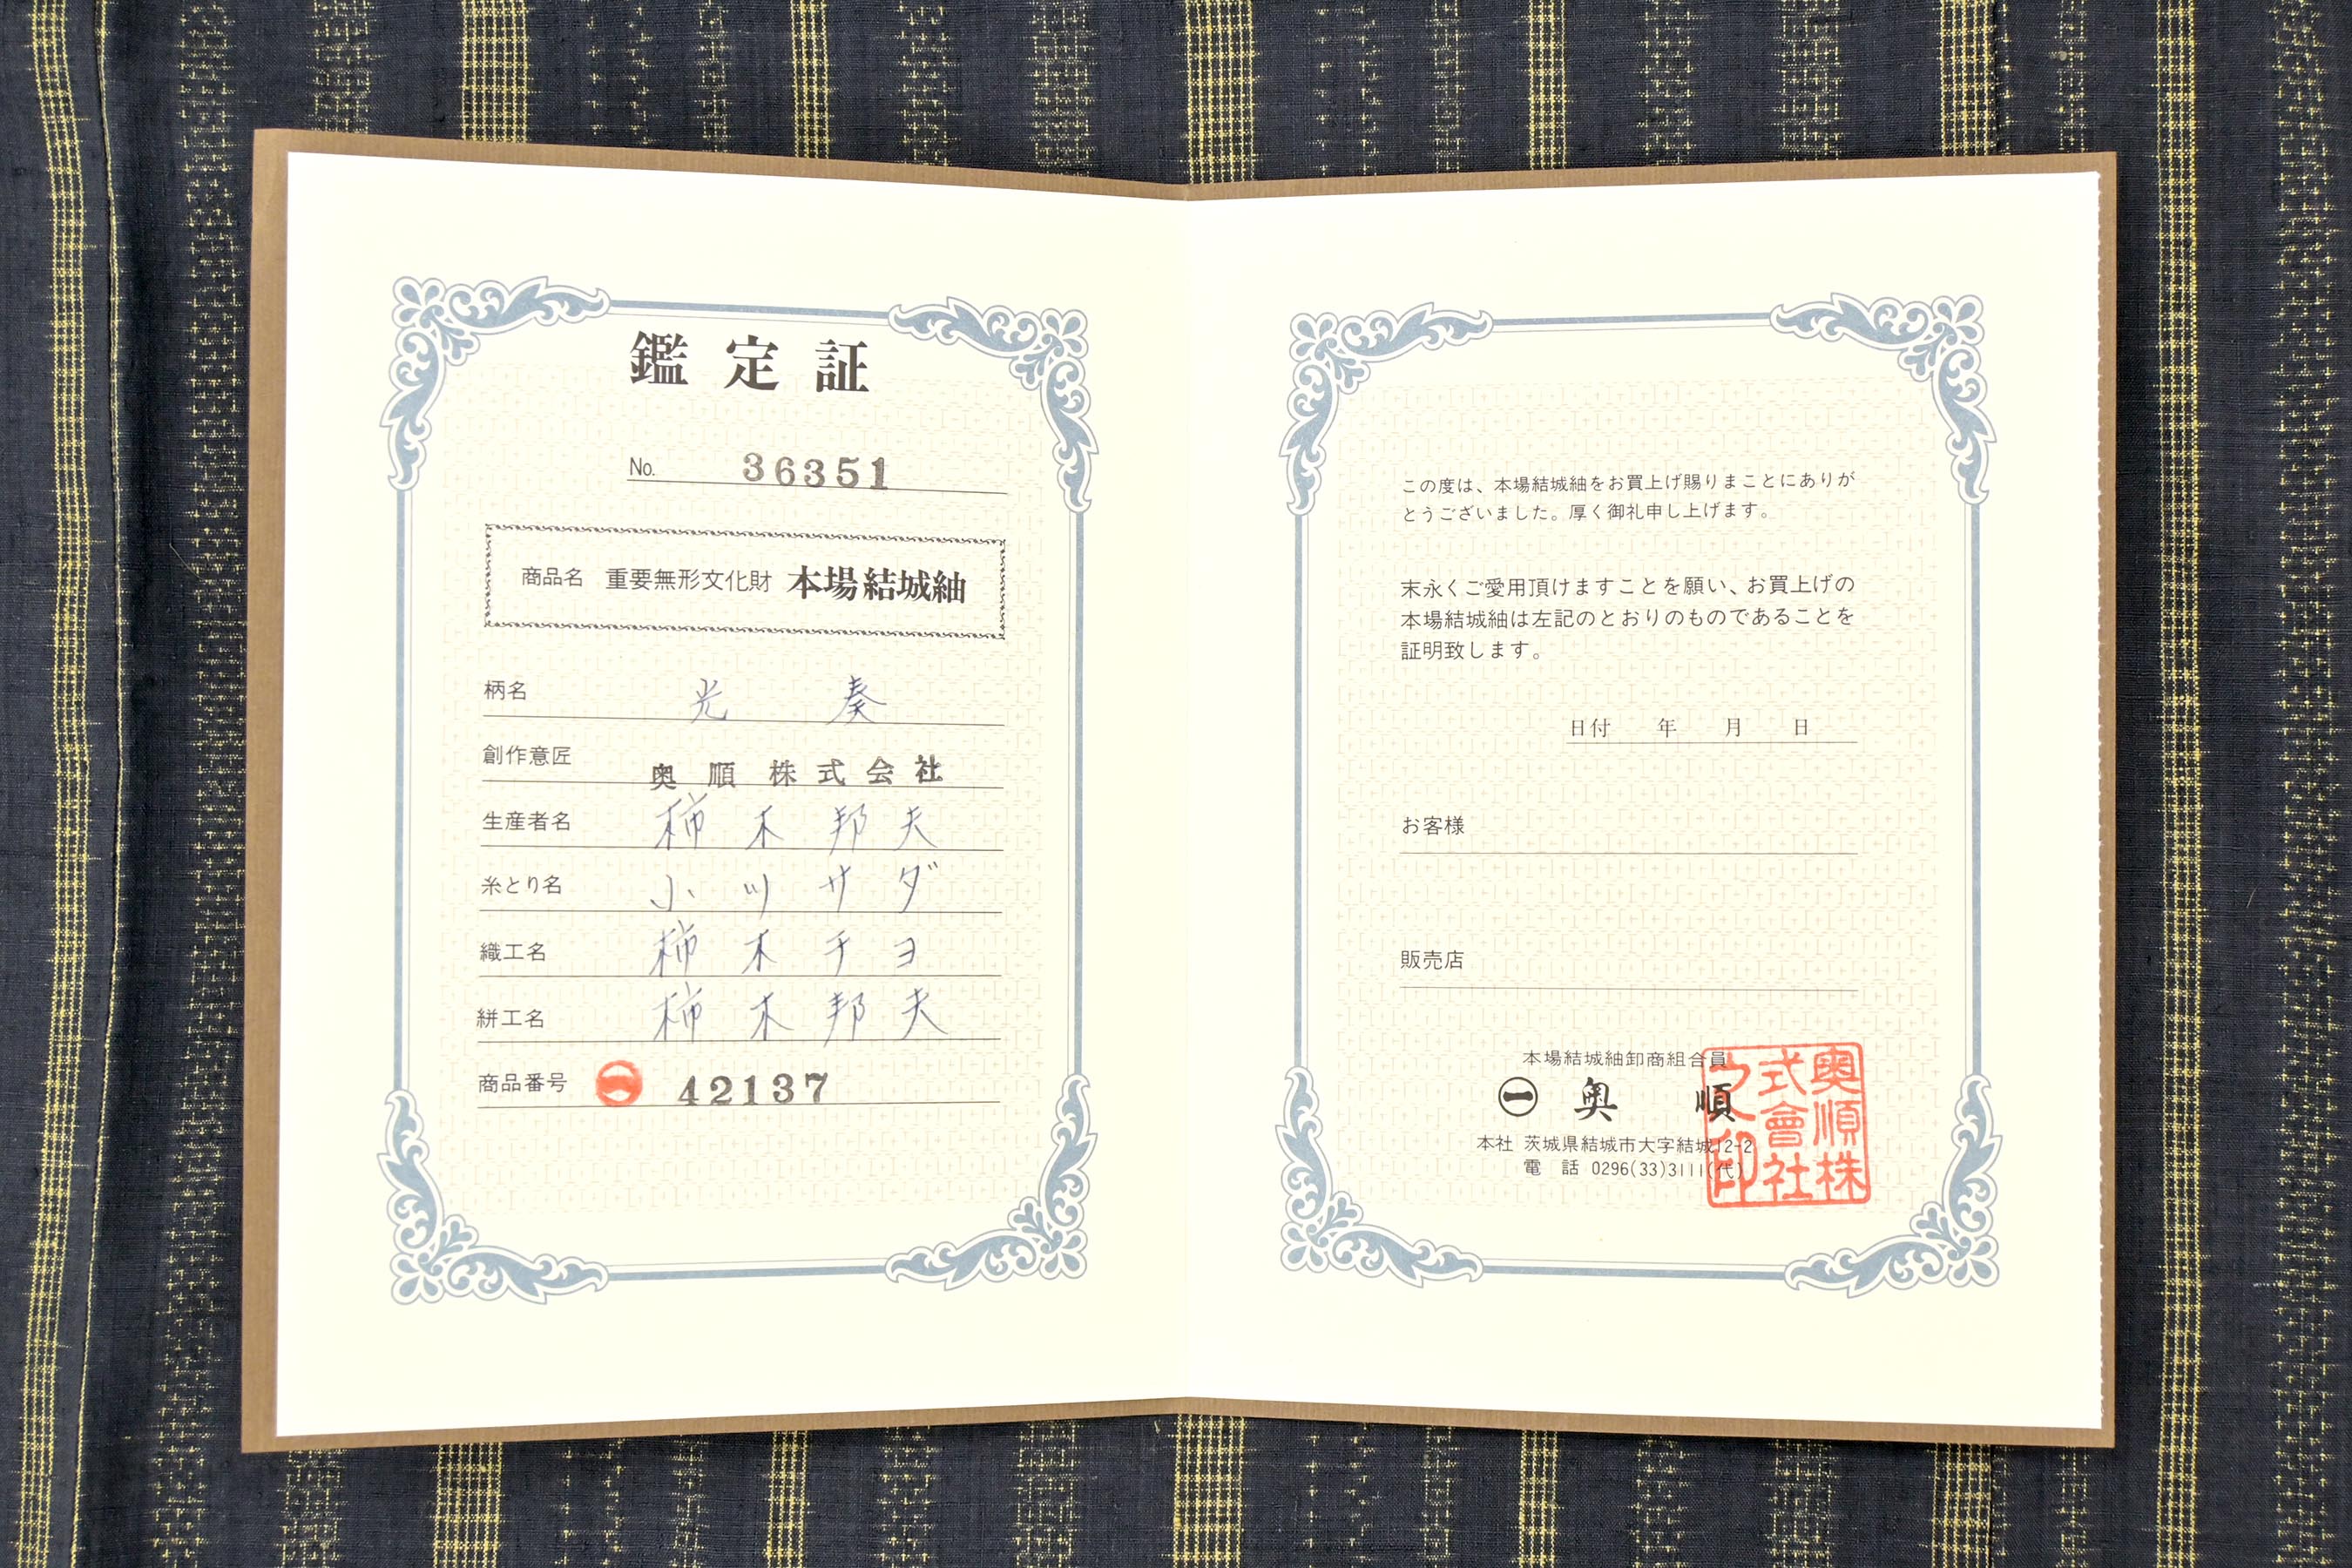 鑑定証
No. 36351
商品名 重要無形文化財 本場結城紬
柄名 光 奏
創作意匠 奥順株式会社
生産者名 柿木邦夫
糸とり名 小ツサダ
織工名 柿木チヨ
絣工名 柿木邦夫
商品番号 一 42137
この度は、本場結城紬をお買上げ賜りまことにありが
とうございました。厚く御礼申し上げます。
末永くご愛用頂けますことを願い、お買上げの
本場結城紬は左記のとおりのものであることを
証明致します。
日付 年 月 日
お客様
販売店
本場結城紬卸商組合員
㊀ 奥 順
本社 茨城県結城市大字結城12-2
電 話 0296(33)3111(代)
奥順株
式會社
之印